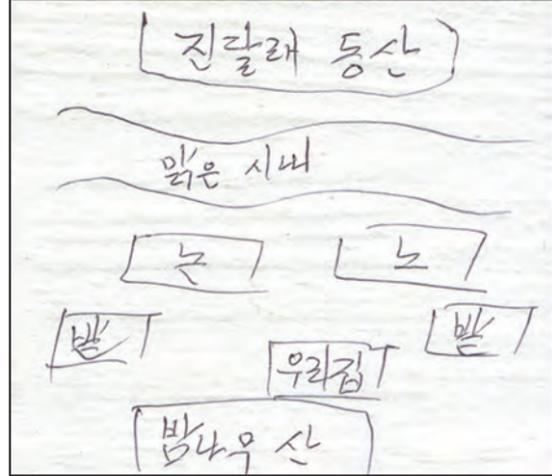 진달래 동산
맑은 시내
논 노
밭 밭
우리집
밤나무 산